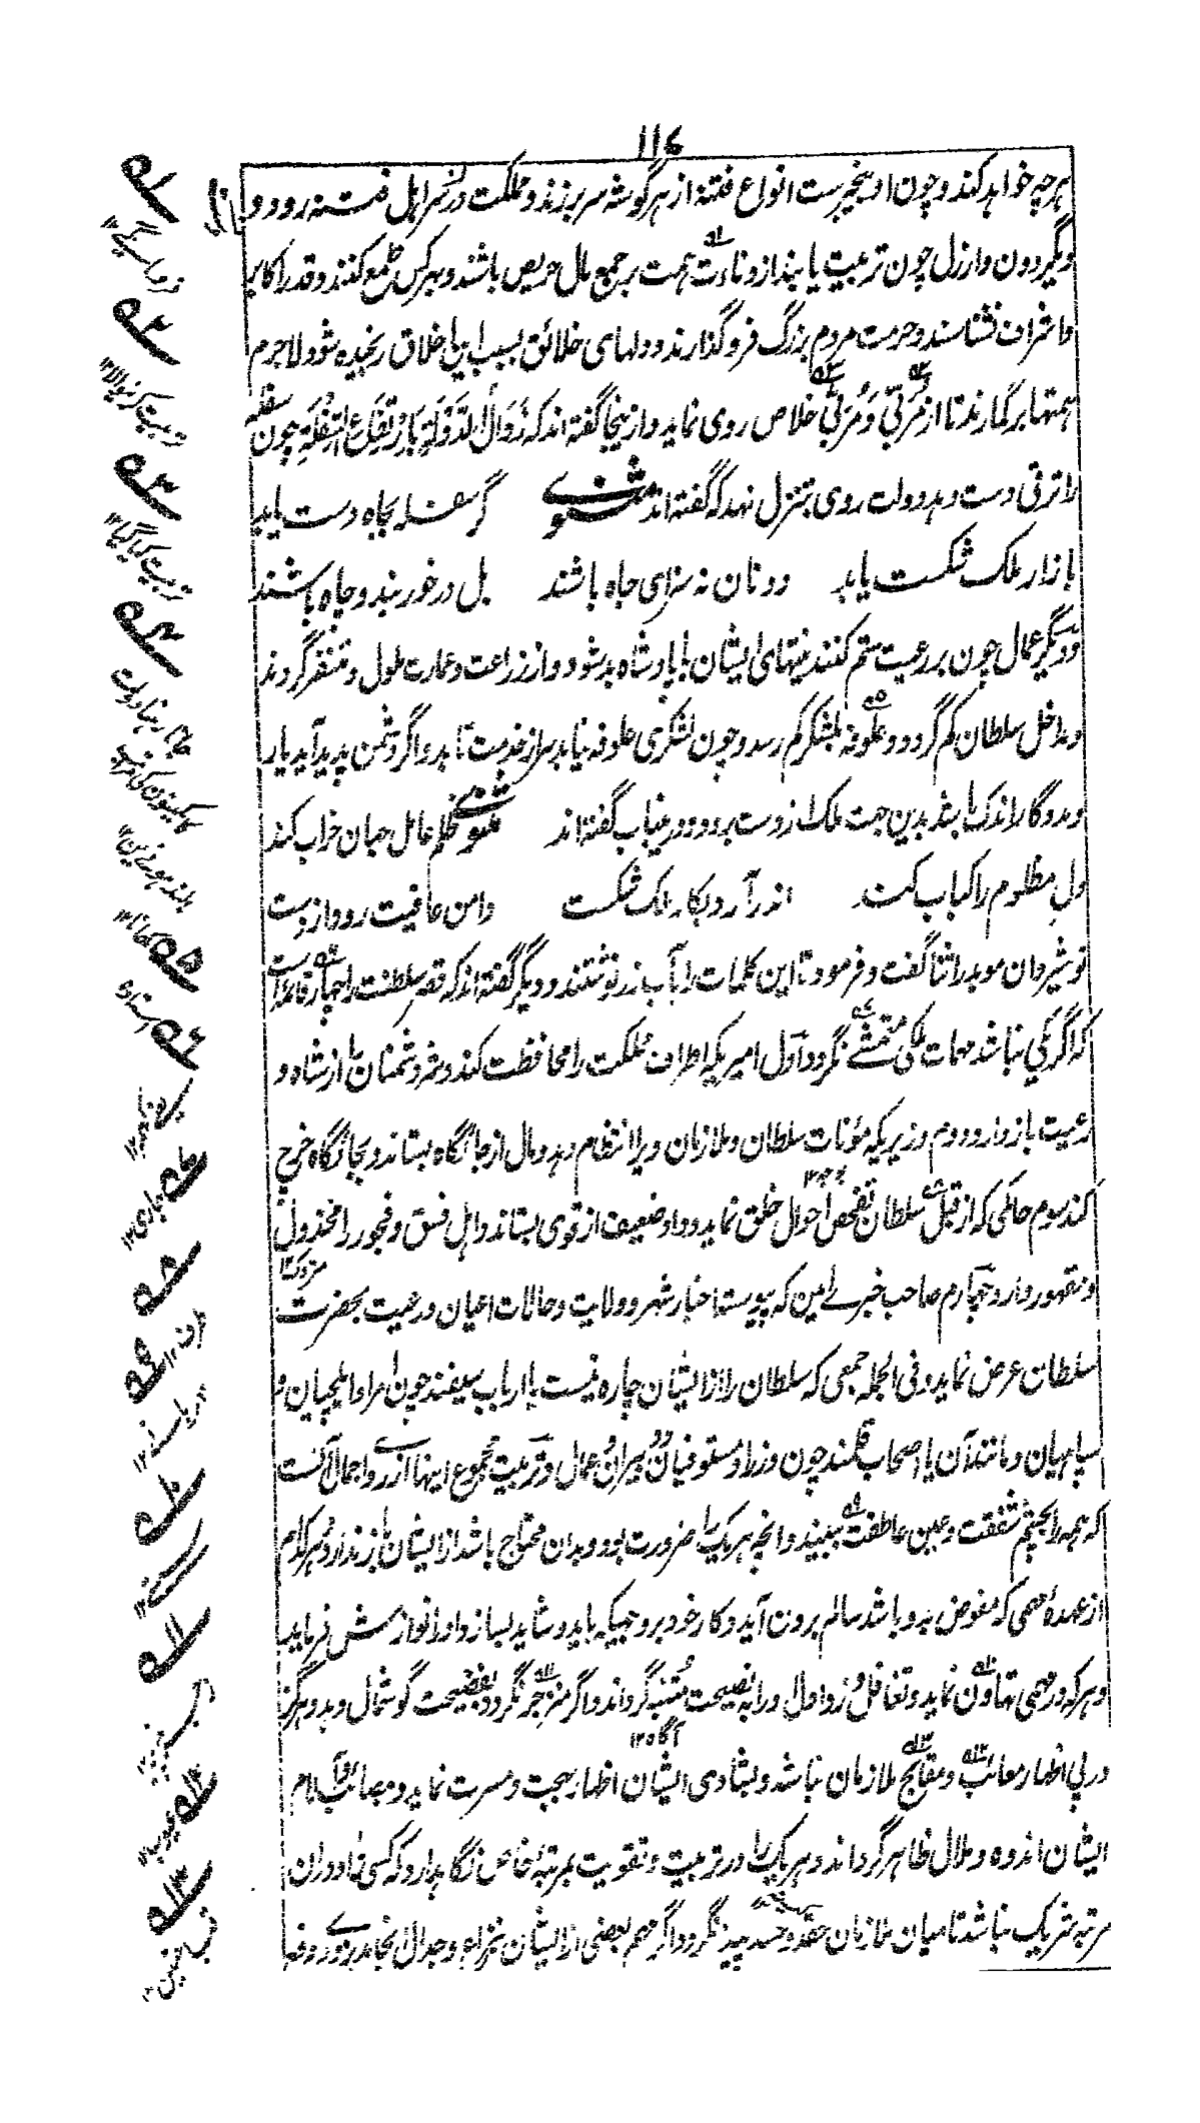 ۱۱۶
هرچه خواهد کند و چون او بیخبرست انواع فتنه از هر گوشه سر برزند و مملکت در سر اهل فتنه رود و
دیگر دون و ارذل چون تربیت یابند از دنائت همت بر جمع مال حریص باشند و بهر کس طمع کنند و قدر اکابر
و اشراف نشناسند و حرمت مردم بزرگ فرو گذارند و دلهای خلائق بسبب این اخلاق رنجیده شود لاجرم
همتها برگمارند تا از مُربّی و مُربّی خلاص روی نماید و ازینجا گفته اند که زَوَالُ الدَّوْلَةِ بِارْتِفَاعِ السِّفْلَةِ چون سفله
را ترقی دست دهد دولت روی بتنزل نهد که گفته اند مثنوی گر سفله بجاه دست یابد
بازار ملک شکست یابد دونان نه سزای جاه باشند بل درخور بند و چاه باشند
و دیگر عمال چون بر رعیت ستم کنند نیتهای ایشان با پادشاه بد شود و از زراعت و عمارت ملول و متنفر گردند
و مداخل سلطان کم گردد و علوفه بلشکر کم رسد و چون لشکری علوفه نیابد سر از خدمت تابد و اگر دشمن پدید آید یار
و مددگار اندک باشد بدین جهت ملک از دست برود و درینباب گفته اند مثنوی ظلم عامل جهان خراب کند
دل مظلوم را کباب کند اندر آرد بکار ملک شکست دامن عافیت رود از دست
نوشیروان موبد را ثنا گفت و فرمود تا این کلمات را بآب زر نوشتند و دیگر گفته اند که قصر سلطنت را چهار قائمه است
که اگر یکی نباشد مهمات ملکی متمشی نگردد اول امیریکه اطراف مملکت را محافظت کند و شر دشمنان را از شاه و
رعیت باز دارد دوم وزیریکه مؤنات سلطان و ملازمان ویرا انتظام دهد و مال از جائگاه بستاند و بجائگاه خرج
کند سوم حاکمی که از قبل سلطان تفحص احوال خلق نماید و داد ضعیف از قوی بستاند و اهل فسق و فجور را مخذول
و مقهور دارد و چهارم صاحب خبرے امین که پیوسته اخبار شهر و ولایت و حالات اعیان و رعیت بحضرت
سلطان عرض نماید و فی الجمله جمعی که سلطان را از ایشان چاره نیست یا ارباب سیفند چون امرا و ایلچیان و
سپاهیان و مانند آن یا اصحاب قلمند چون وزرا و مستوفیان و دبیران و عمال و تربیت مجموع اینها از روے اجمال آنست
که همه را بچشم شفقت و عین عاطفت ببیند و انچه هر یک را ضرورت بود و بدان محتاج باشد از ایشان باز ندارد و هر کدام
از عهده مهمی که مفوض بدو باشد سالم برون آید و کار خود بروجهیکه باید و شاید بسازد او را نوازش فرماید
و هر که در مهمی تهاون نماید و تغافل ورزد اول ورا به نصیحت متنبه گرداند و اگر منزجر نگردد بفضیحت گوشمال دهد و هرگز
در پی اظهار معائب و مقابح ملازمان نباشد و بشادی ایشان اظهار بهجت و مسرت نماید و بمصائب و آلام
ایشان اندوه و ملال ظاهر گرداند و هر یک را در تربیت و تقویت بمرتبه خاص نگاهدارد که کسی با او دران
مرتبه شریک نباشد تا میان ملازمان حقد و حسد پدید نگردد اگر مهم بعضی از ایشان بنزاع و جدال انجامد زود در رفع